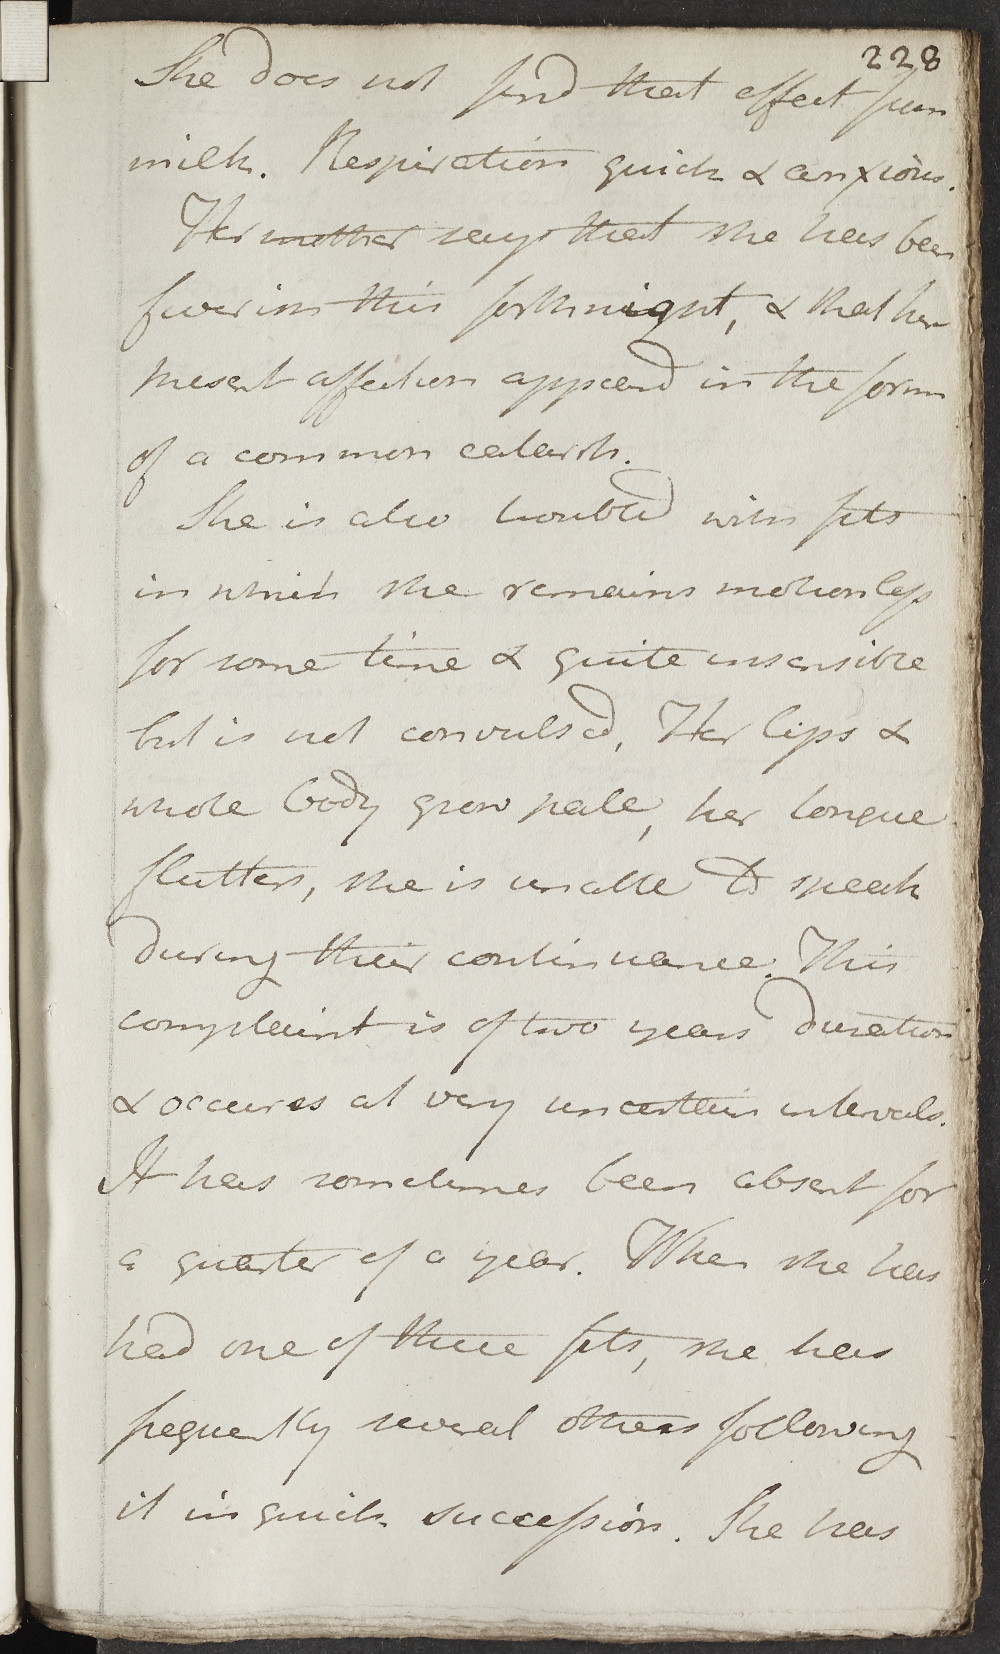 228
She does not find that effect from
milk. Respiration quick & anxious.
Her mother says that she has been
feverish this forthnight, & that her
present affection appeard in the form
of a common catarrh.
She is also troubled with fits
in which she remains motionless
for some time & quite insensible
but is not convulsed, Her lips &
whole body grow pale, her tongue
flutters, she is unable to speak
during their continuance. This
complaint is of two years duration
& occures at very uncertain intervals.
It has sometimes been absent for
a quarter of a year. When she has
had one of these fits, she has
frequently several others following
it in quick succession. She has